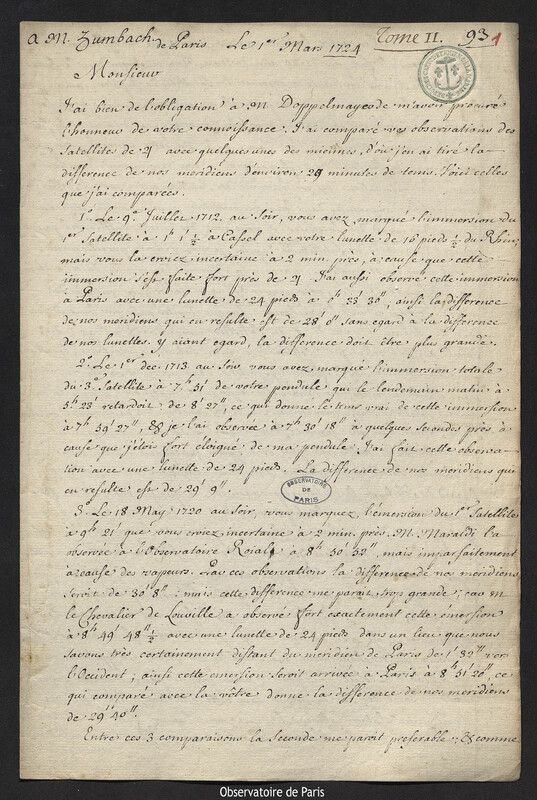 A M. Zumbach. de Paris Le 1er Mars 1724 Tome II. 93 1
Monsieur
J'ai bien de l'obligation à M Doppelmayer de m'avoir procuré
l'honneur de votre connoissance. J'ai comparé vos observations des
Satellites de ♃ avec quelques unes des miennes, d'où j'en ai tiré la
difference de nos meridiens d'environ 29 minutes de tems. Voici celles
que j'ai comparées.
1o. Le 9e Juillet 1712. au Soir, vous avez marqué l'immersion du
1er Satellite à 1h 1' ½ à Cassel avec votre lunette de 16 pieds ½ du Rhin,
mais vous la croiez incertaine à 2 min. près, à cause que cette
immersion s'est faite fort près de ♃. J'ai aussi observé cette immersion
à Paris avec une lunette de 24 pieds à 33' 30", ainsi la difference
de nos meridiens qui en resulte est de 28' 0" sans egard à la difference
de nos lunettes. y aiant egard, la difference doit être plus grande.
2o. Le 1er dec. 1713. au Soir vous avez marqué l'immersion totale
du 3e Satellite à 7h. 51' de votre pendule qui le lendemain matin à
5h 23' retardoit de 8' 27", ce qui donne le tems vrai de cette immersion
à 7h 59' 27", & je l'ai observée à 7h 30' 18" à quelques secondes près à
cause que j'étois fort éloigné de ma pendule. J'ai fait cette observa-
tion avec une lunette de 24 pieds. La difference de nos meridiens qui
en resulte est de 29' 9".
OBSERVATOIRE DE PARIS
3o. Le 18 May 1720 au Soir, vous marquez l'émersion du 1er Satellite
à 9h 21' que vous croiez incertaine à 2 min. près. M. Maraldi l'a
observée à l'Observatoire Roial à 8h 50' 52", mais imparfaitement
à cause des vapeurs. Par ces observations la difference de nos meridiens
seroit de 30' 8" : mais cette difference me parait trop grande ; car M
le Chevalier de Louville a observé fort exactement cette émersion
à 8h 49' 48" ½ avec une lunette de 24 pieds dans un lieu que nous
savons très certainement distant du meridien de Paris de 1' 32" vers
l'Occident ; ainsi cette emersion seroit arrivée à Paris à 8h 51' 20", ce
qui comparé avec la vôtre donne la difference de nos meridiens
de 29' 40".
Entre ces 3 comparaisons la seconde me paroit preferable, & comme
Observatoire de Paris